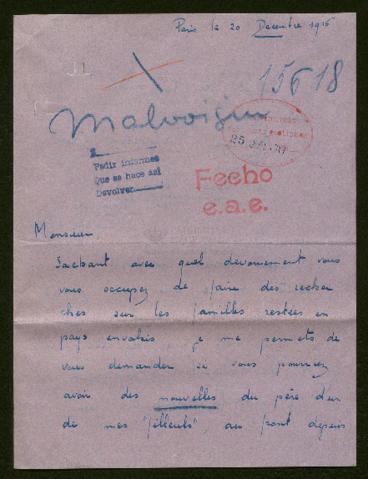 Paris le 20 Decembre 1916
15618
Malvoisin
Pedir informes
Que se hace así
Devolver
Fecho
e.a.e.
Monsieur
Sachant avec quel dévouement vous
vous occupez de faire des recher
ches sur les familles restées en
pays envahis je me permets de
vous demander si vous pourriez
avoir des nouvelles du père d'un
de mes "filleuls" au front depuis